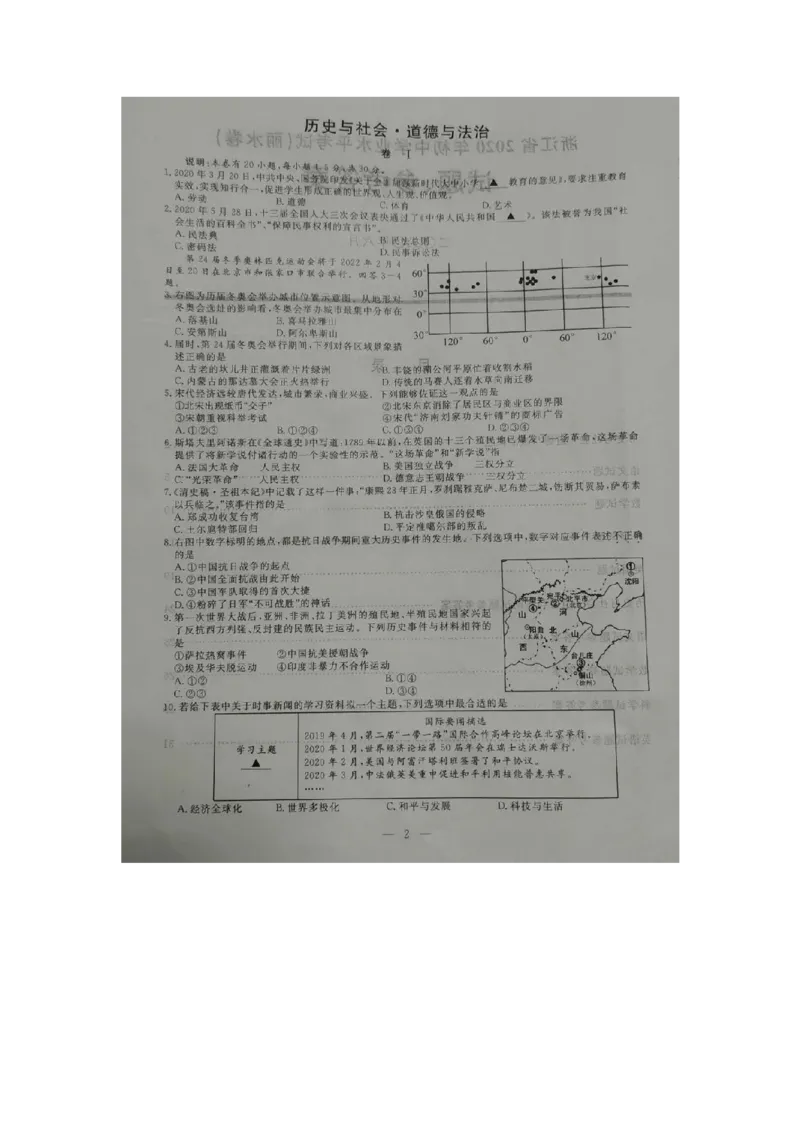 历史与社会·道德与法治
卷 Ⅰ
说明:本卷有20小题,每小题1.5分,共30分。
1.2020年3月20日,中共中央、国务院印发《关于全面加强新时代大中小学 ▲ 教育的意见》,要求注重教育
实效,实现知行合一,促进学生形成正确的世界观、人生观、价值观。
A.劳动 B.道德 C.体育 D.艺术
2.2020年5月28日,十三届全国人大三次会议表决通过了《中华人民共和国 ▲ 》。该法被誉为我国“社
会生活的百科全书”、“保障民事权利的宣言书”。
A.民法典 B.民法总则
C.密码法 D.民事诉讼法
第24届冬季奥林匹克运动会将于2022年2月4
日至20日在北京市和张家口市联合举行。回答3—4
题。
3.右图为历届冬奥会举办城市位置示意图。从地形对
冬奥会选址的影响看,冬奥会举办城市最集中分布在
A.落基山 B.喜马拉雅山
C.安第斯山 D.阿尔卑斯山
60°
30°
0°
30°
120° 60° 0° 60° 120°
北京
4.届时,第24届冬奥会举行期间,下列对各区域景象描
述正确的是
A.古老的坎儿井正灌溉着片片绿洲 B.丰饶的湄公河平原忙着收割水稻
C.内蒙古的那达慕大会正火热举行 D.传统的马赛人逐着水草向南迁移
5.宋代经济远较唐代发达,城市繁荣,商业兴盛。下列能够佐证这一观点的是
①北宋出现纸币“交子” ②北宋东京消除了居民区与商业区的界限
③宋朝重视科举考试 ④宋代“济南刘家功夫针铺”的商标广告
A.①②③ B.①②④ C.①③④ D.②③④
6.斯塔夫里阿诺斯在《全球通史》中写道:1789年以前,在英国的十三个殖民地已爆发了一场革命,这场革命
提供了将新学说付诸行动的一个实验性的示范。“这场革命”和“新学说”指
A.法国大革命 人民主权 B.美国独立战争 三权分立
C.“光荣革命” 人民主权 D.德意志王朝战争 三权分立
7.《清史稿·圣祖本记》中记载了这样一件事,“康熙23年正月,罗刹踞雅克萨、尼布楚二城,饬断其贸易,萨布素
以兵临之,”该事件指的是
A.郑成功收复台湾 B.抗击沙皇俄国的侵略
C.土尔扈特部回归 D.平定准噶尔部的叛乱
8.右图中数字标明的地点,都是抗日战争期间重大历史事件的发生地。下列选项中,数字对应事件表述不正确
的是
A.①中国抗日战争的起点
B.②中国全面抗战由此开始
C.③中国军队取得的首次大捷
D.④粉碎了日军“不可战胜”的神话
①
沈阳
平型关 宛平 北平市
(北京)
④ ②
山 河
阳曲 北 山
(太原)
西 东
台儿庄
③
铜山
(徐州)
9.第一次世界大战后,亚洲、非洲、拉丁美洲的殖民地、半殖民地国家兴起
了反抗西方列强、反封建的民族民主运动。下列历史事件与材料相符的
是
①萨拉热窝事件 ②中国抗美援朝战争
③埃及华夫脱运动 ④印度非暴力不合作运动
A.①② B.①④
C.②③ D.③④
10.若给下表中关于时事新闻的学习资料拟一个主题,下列选项中最合适的是
学习主题
▲
国际要闻摘选
2019年4月,第二届“一带一路”国际合作高峰论坛在北京举行。
2020年1月,世界经济论坛第50届年会在瑞士达沃斯举行。
2020年2月,美国与阿富汗塔利班签署了和平协议。
2020年3月,中法俄英美重申促进和平利用核能普惠共享。
……
A.经济全球化 B.世界多极化 C.和平与发展 D.科技与生活
— 2 —